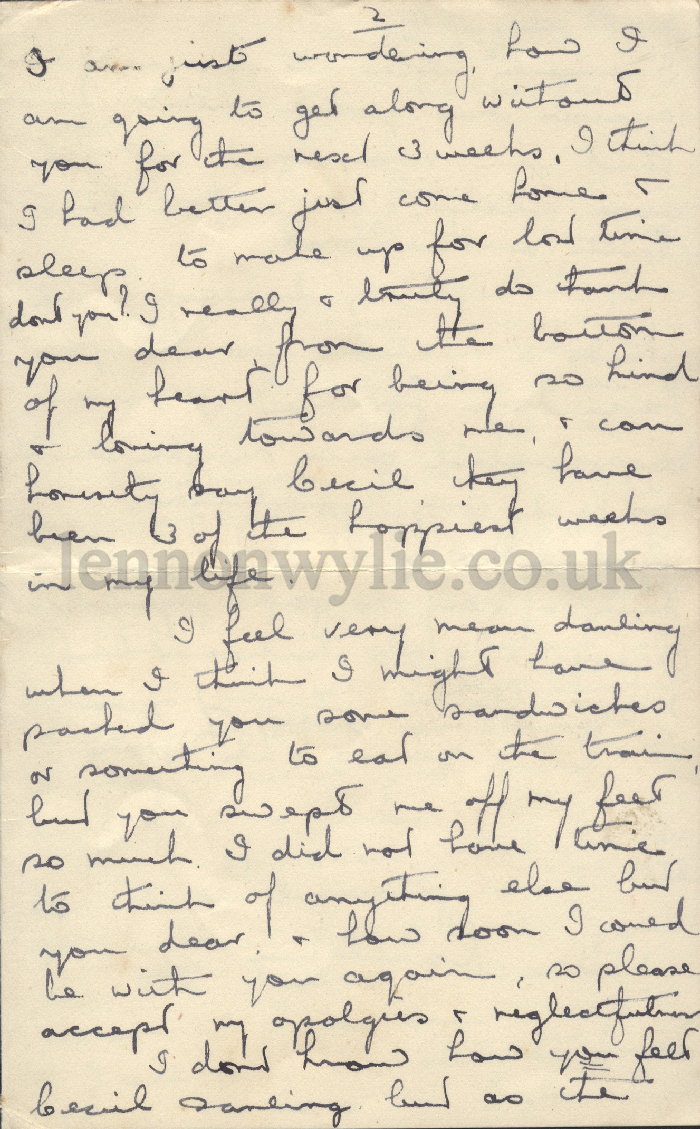 2
I am just wondering, how I
am going to get along without
you for the next 3 weeks. I think
I had better just come home &
sleep to make up for lost time
dont you? I really & truly do thank
you dear, from the bottom
of my heart for being so kind
& loving towards me, & can
honestly say Cecil they have
been 3 of the happiest weeks
in my life.
lennonwylie.co.uk
I feel very mean darling
when I think I might have
packed you some sandwiches
or something to eat on the train,
but you swept me off my feet
so much. I did not have time
to think of anything else but
you dear. & how soon I could
be with you again, so please
accept my apolgies & neglectfulness
I dont know how you felt
Cecil darling but as the